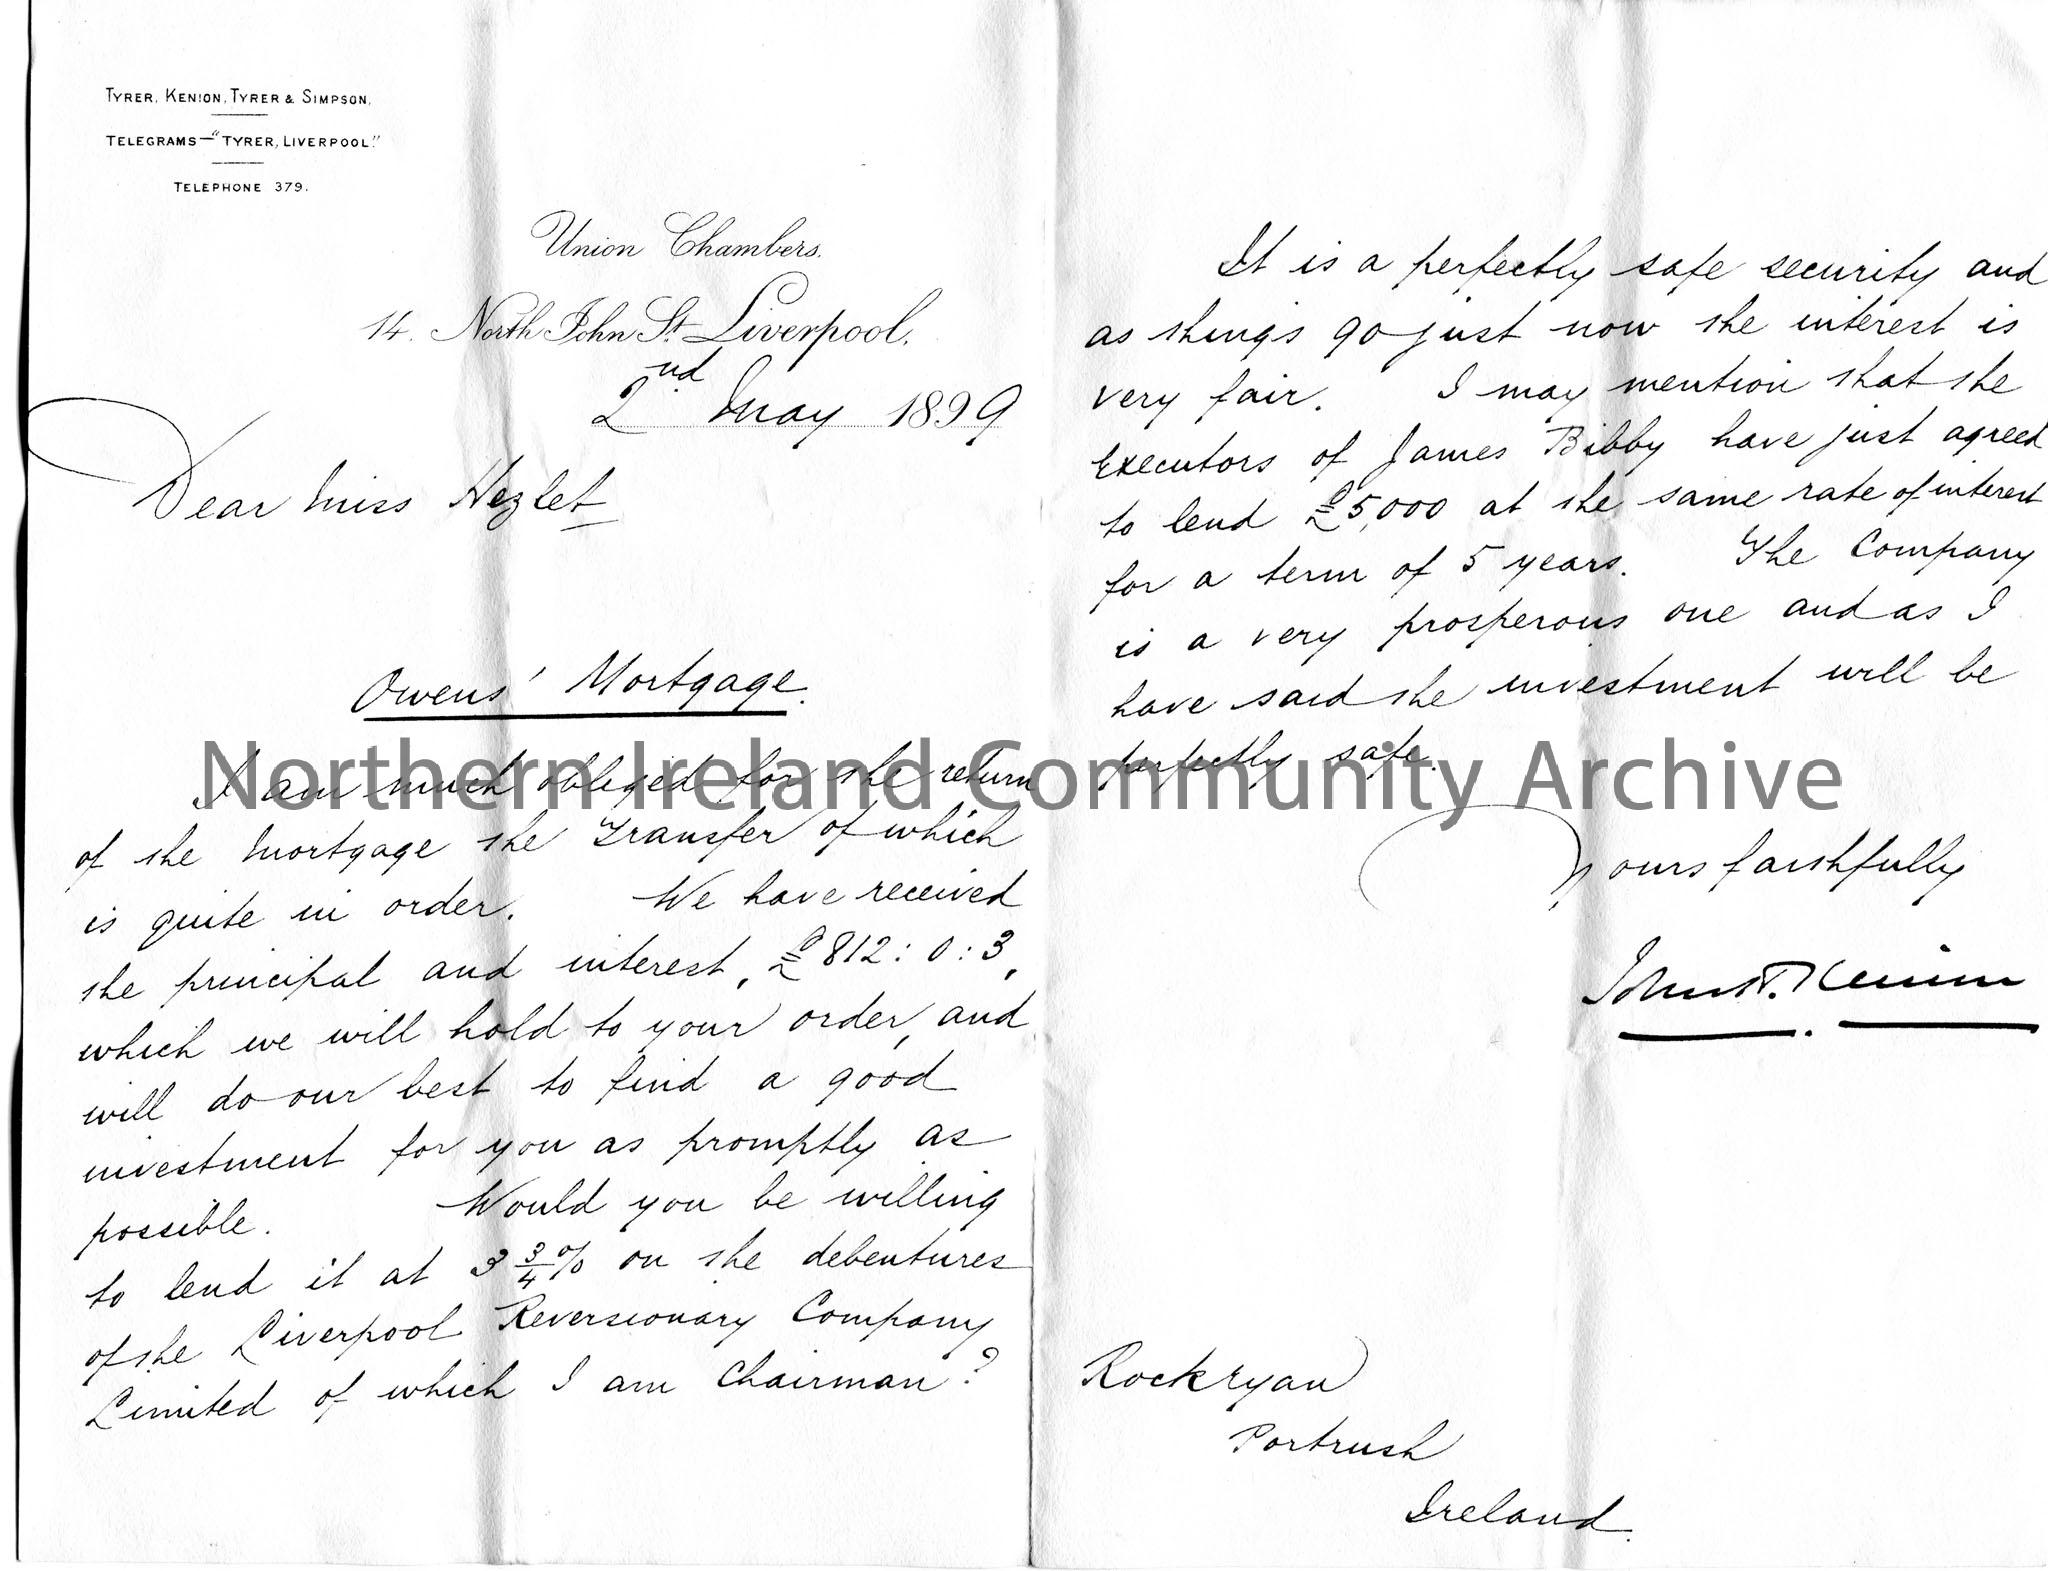 TYRER, KENION, TYRER & SIMPSON.
TELEGRAMS—"TYRER, LIVERPOOL."
TELEPHONE 379.
Union Chambers.
14. North John St. Liverpool,
2nd May 1899
Dear Miss Hezlet
Owens' Mortgage.
I am much obliged for the return
of the mortgage the Transfer of which
is quite in order. We have received
the principal and interest, £812:0:3,
which we will hold to your order, and
will do our best to find a good
investment for you as promptly as
possible. Would you be willing
to lend it at 3 3/4 % on the debentures
of the Liverpool Reversionary Company
Limited of which I am Chairman?
It is a perfectly safe security and
as things go just now the interest is
very fair. I may mention that the
Executors of James Bibby have just agreed
to lend £5,000 at the same rate of interest
for a term of 5 years. The Company
is a very prosperous one and as I
have said the investment will be
perfectly safe.
Yours faithfully
John T. Kenion
Rockryan
Portrush
Ireland.
Northern Ireland Community Archive